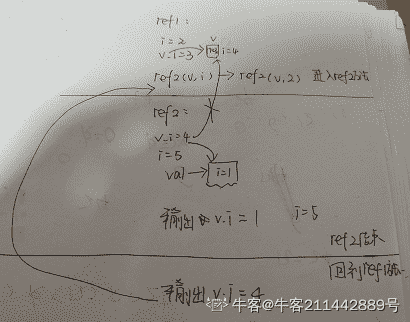 ref1:
i=2 v
v.i=3 i=4
ref2(v,i) → ref2(v,2) 进入ref2方法
ref2:
v.i=4
i=5
val → i=1
输出 v.i=1 i=5
ref2结束
回到ref1方法
输出 v.i=4
牛客@牛客211442889号